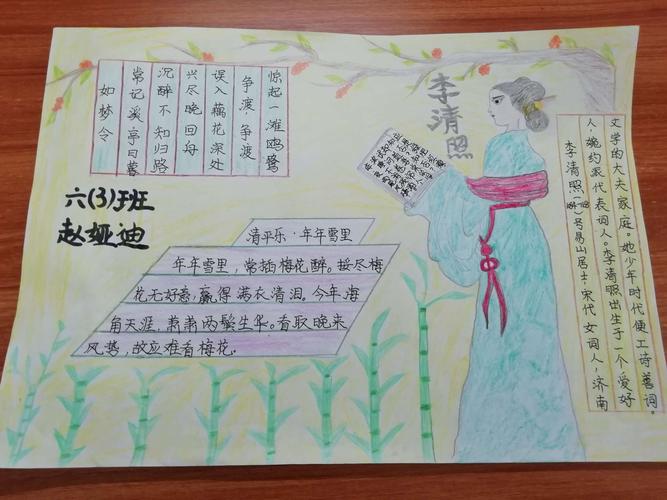 李清照
如梦令
常记溪亭日暮
沉醉不知归路
兴尽晚回舟
误入藕花深处
争渡,争渡
惊起一滩鸥鹭
六(3)班
赵娅迪
清平乐·年年雪里
年年雪里,常插梅花醉。挼尽梅
花无好意,赢得满衣清泪。今年海
角天涯,萧萧两鬓生华。看取晚来
风势,故应难看梅花。
李清照号易山居士,宋代女词人,济南
人,婉约派代表词人。李清照出生于一个爱好
文学的大夫家庭。她少年时代便工诗善词。